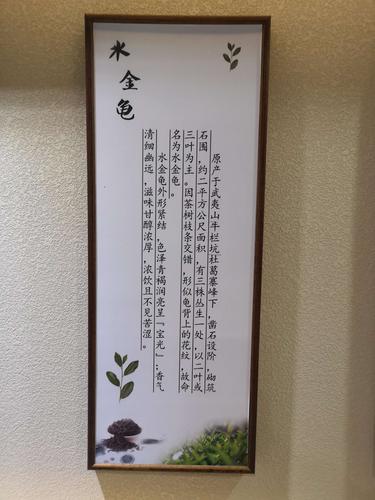 水金龟
原产于武夷山牛栏坑杜葛寨峰下，凿石设阶，砌筑
石围，约二平方公尺面积，有三株丛生一处，以二叶或
三叶为主。因茶树枝条交错，形似龟背上的花纹，故命
名为水金龟。
水金龟外形紧结，色泽青褐润亮呈“宝光”；香气
清细幽远，滋味甘醇浓厚，浓饮且不见苦涩。